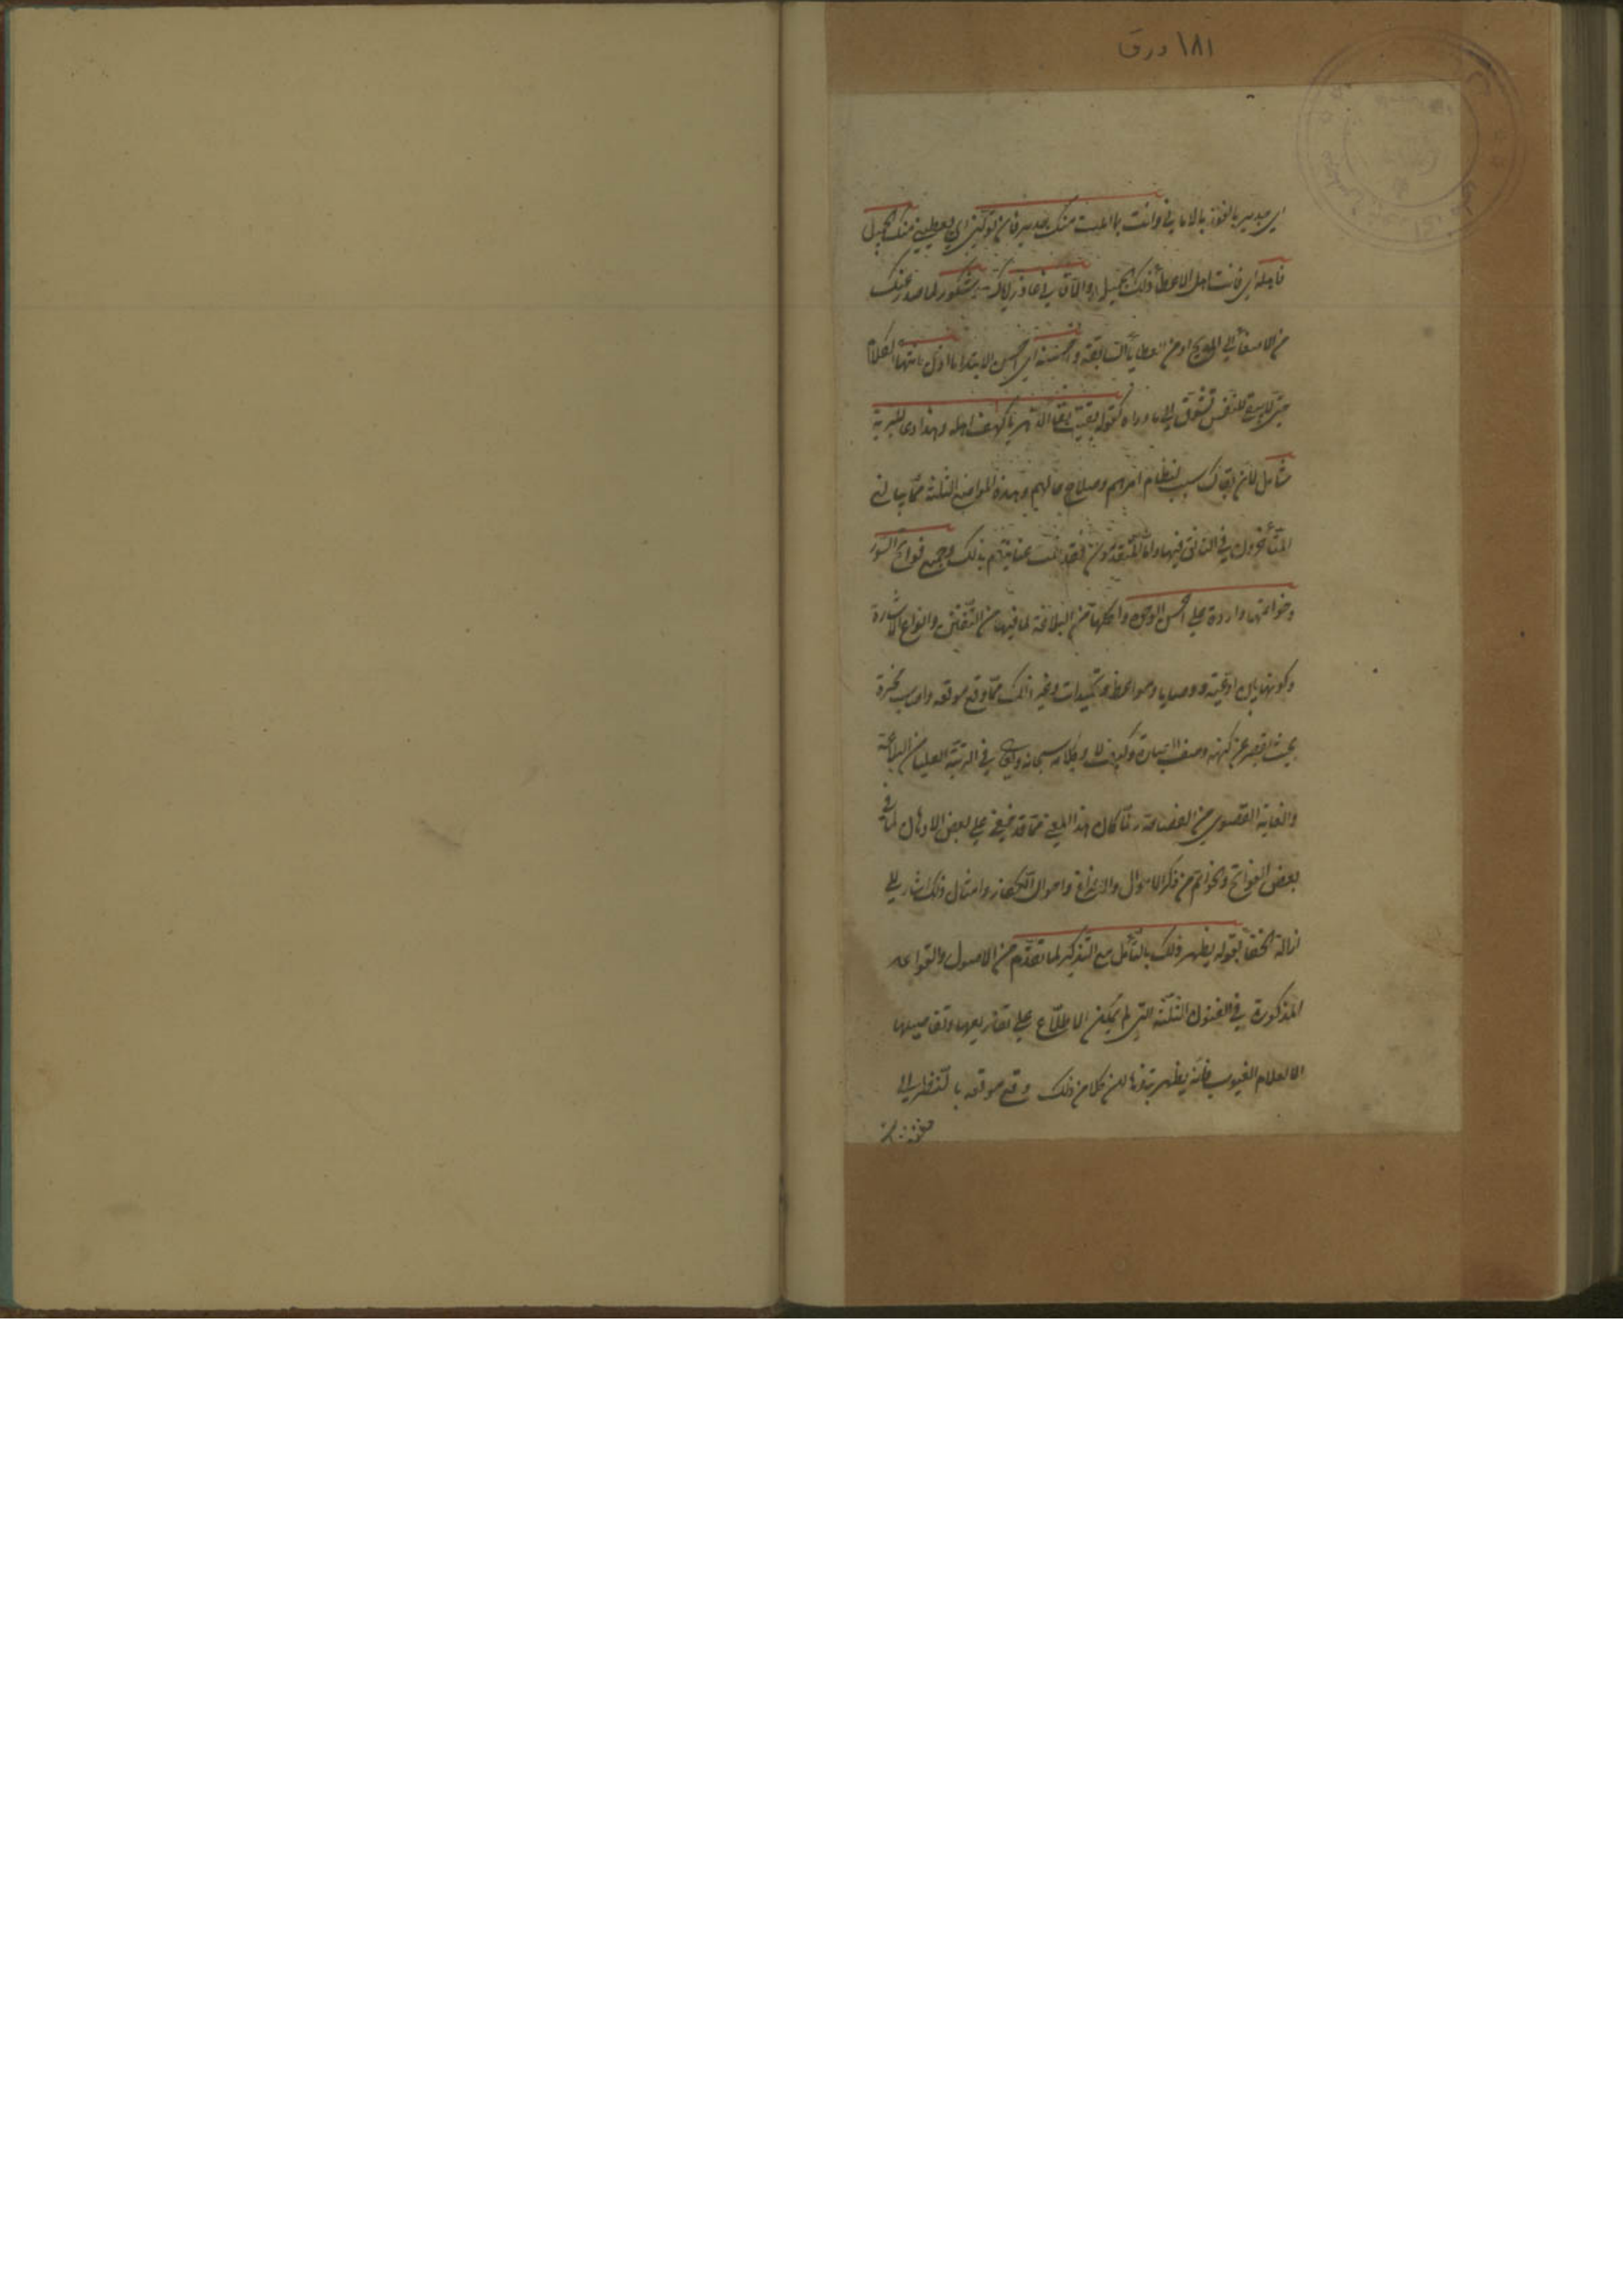 ١٨١ ورق
اي جدير بالفوز بالاماني وانت بما املت منك جدير فان تولني اي تعطيني منك الجميل
فاهله اي فانت اهل الاعطاء ذلك الجميل والا فاني عاذر اياك وشكور لما صدر عنك
من الاصغاء الي المديح او من العطايا السابقة واحسنه اي احسن الانتهاء ما اذن بانتهاء الكلام
حتي لا يبقي للنفس تشوق الي ما وراه كقوله بقيت بقاء الدهر يا كهف اهله وهذا دعاء للبرية
شامل لان بقاك سبب لنظام امرهم وصلاح حالهم وهذه المواضع الثلثة مما يبالغ
المتأخرون في التانق فيها واما المتقدمون فقد قلت عنايتهم بذلك وجميع فواتح السور
وخواتمها واردة علي احسن الوجوه واكملها من البلاغة لما فيها من التفنن وانواع الاشارة
وكونها بين ادعية ووصايا ومواعظ وتحميدات وغير ذلك مما وقع موقعه واصاب محزه
بحيث تقصر عن كنهه وصف العبارة وكيف لا وكلام سبحانه وتعالي في الرتبة العليا من البلاغة
والغاية القصوي من الفصاحة ولما كان هذا المعني مما قد يخفي علي بعض الاذهان لما في
بعض الفواتح والخواتم من ذكر الاهوال والافزاع واحوال الكفار وامثال ذلك اشار الي
ازالة الخفاء بقوله يظهر ذلك بالتأمل مع التذكير لما تقدم من الاصول والقواعد
المذكورة في الفنون الثلثة التي لم يمكن الاطلاع علي تفاريعها وتفاصيلها
الا لعلام الغيوب فانه يظهر بتذكرها ان كلا من ذلك وقع موقعه بالنظر الي